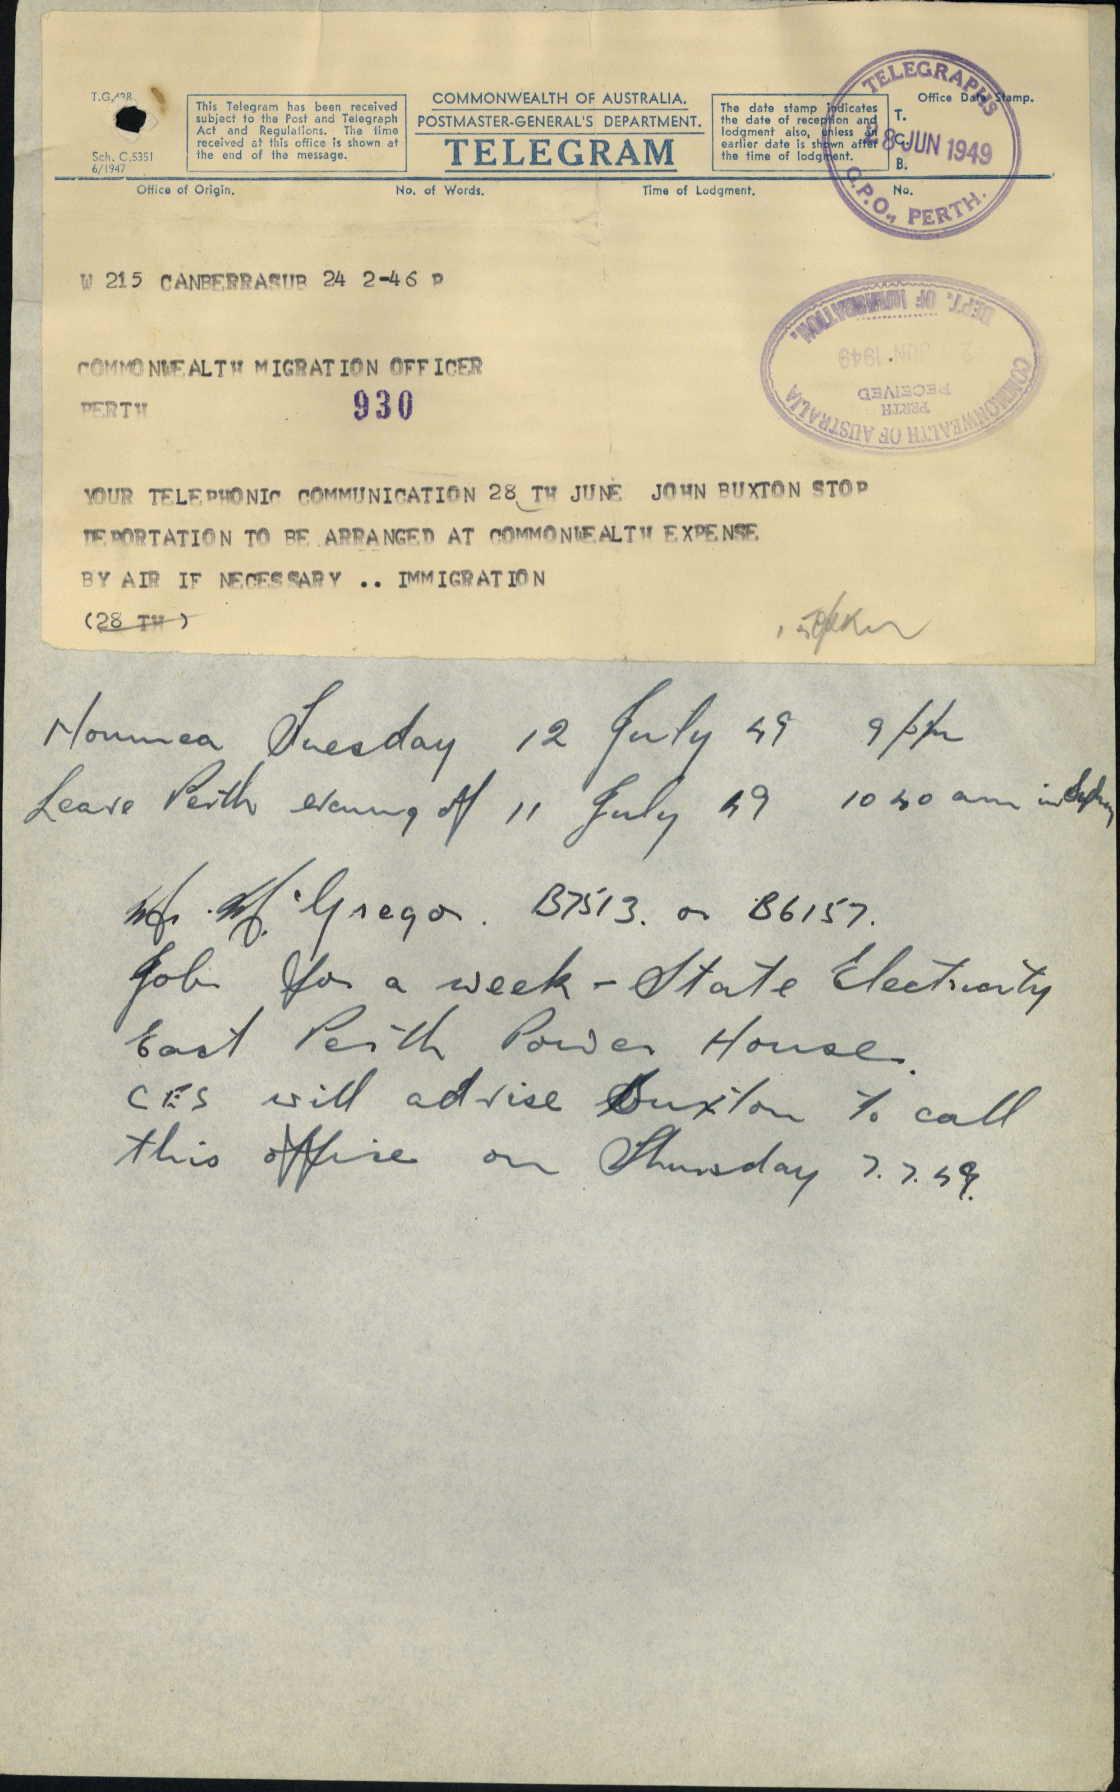 T.G.
Sch. C.5351
6/1947
This Telegram has been received
subject to the Post and Telegraph
Act and Regulations. The time
received at this office is shown at
the end of the message.
COMMONWEALTH OF AUSTRALIA.
POSTMASTER-GENERAL'S DEPARTMENT.
TELEGRAM
The date stamp indicates
the date of reception and
lodgment also, unless an
earlier date is shown after
the time of lodgment.
Office Date Stamp.
T.
C.
B.
TELEGRAPHS
28 JUN 1949
G.P.O., PERTH.
Office of Origin.
No. of Words.
Time of Lodgment.
No.
W 215 CANBERRASUB 24 2-46 P
DEPT. OF IMMIGRATION.
JUN 1949
RECEIVED
PERTH
COMMONWEALTH OF AUSTRALIA
COMMONWEALTH MIGRATION OFFICER
PERTH 930
YOUR TELEPHONIC COMMUNICATION 28 TH JUNE JOHN BUXTON STOP
DEPORTATION TO BE ARRANGED AT COMMONWEALTH EXPENSE
BY AIR IF NECESSARY .. IMMIGRATION
(28 TH)
Noumea Tuesday 12 July 49 9 pm
Leave Perth evening of 11 July 49 10 40 am in Sydney
Mr. Mc Gregor. B7513. or B6157.
Job for a week - State Electricity
East Perth Power House.
CES will advise Buxton to call
this office on Thursday 7.7.49.